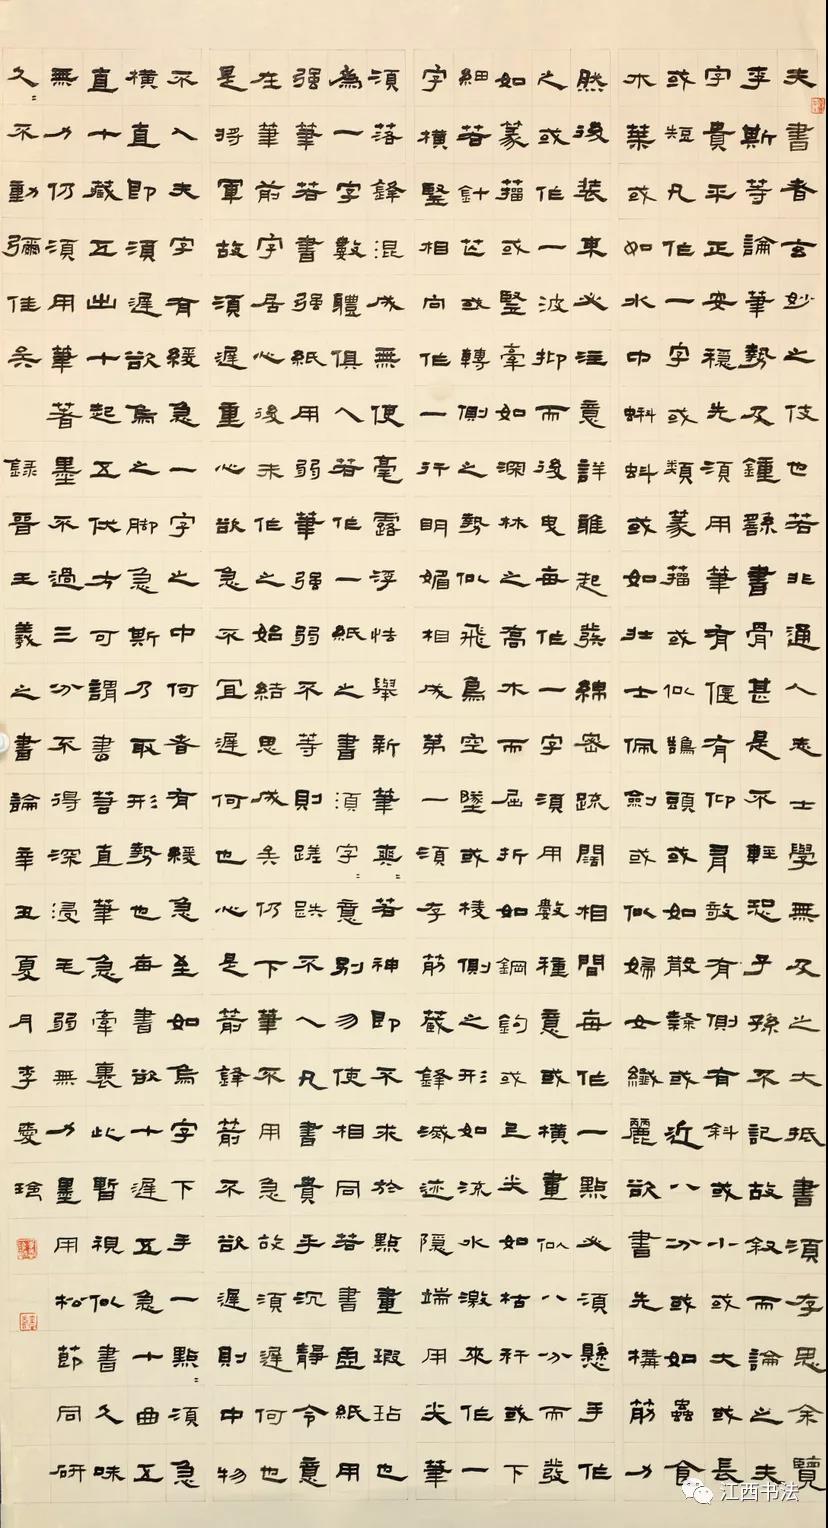 夫書者玄妙之伎也若非通人志士學無及之大抵書須存思余覽
李斯等論筆勢及鍾繇書骨甚是不輕恐子孫不記故叙而論之夫
字貴平正安穩先須用筆有偃有仰有敧有側有斜或小或大或長
或短凡作一字或類篆籀或似鵠頭或如散隸或近八分或如蟲食
木葉或如水中蝌蚪或如壯士佩劍或似婦女纖麗欲書先構筋力
然後裝束必注意詳雅起發綿密疏闊相間每作一點必須懸手作
之或作一波抑而後曳每作一字須用數種意或橫畫似八分而發
如篆籀或豎牽如深林之高木而屈折如鋼鉤或上尖如枯稈或下
細若針芒或轉側之勢似飛鳥空墜或棱側之形如流水激來作一
字橫豎相向作一行明媚相成第一須存筋藏鋒滅迹隱端用尖筆
須落鋒混成無使毫露浮怯舉新筆爽〻若神即不求於點畫瑕玷也
為一字數體俱入若作一紙之書須字〻意別勿使相同若書虛紙用
强筆若書强紙用弱筆强弱不等則蹉跌不入凡書貴手沉靜令意
在筆前字居心後未作之始結思成矣仍下筆不用急故須遲何也
是將軍故須遲重心欲急不宜遲何也心是箭鋒箭不欲遲則中物
不入夫字有緩急一字之中何者有緩急至如烏字下手一點〻須急
橫直即須遲欲烏之脚急斯乃取形勢也每書欲十遲五急十曲五
直十藏五出十起五伏方可謂書若直筆急牽裏此暫視似書久味
無力仍須用筆著墨不過三分不得深浸毛弱無力墨用松節同研
久〻不動彌佳矣 録晉王羲之書論辛丑夏月李
江西书法